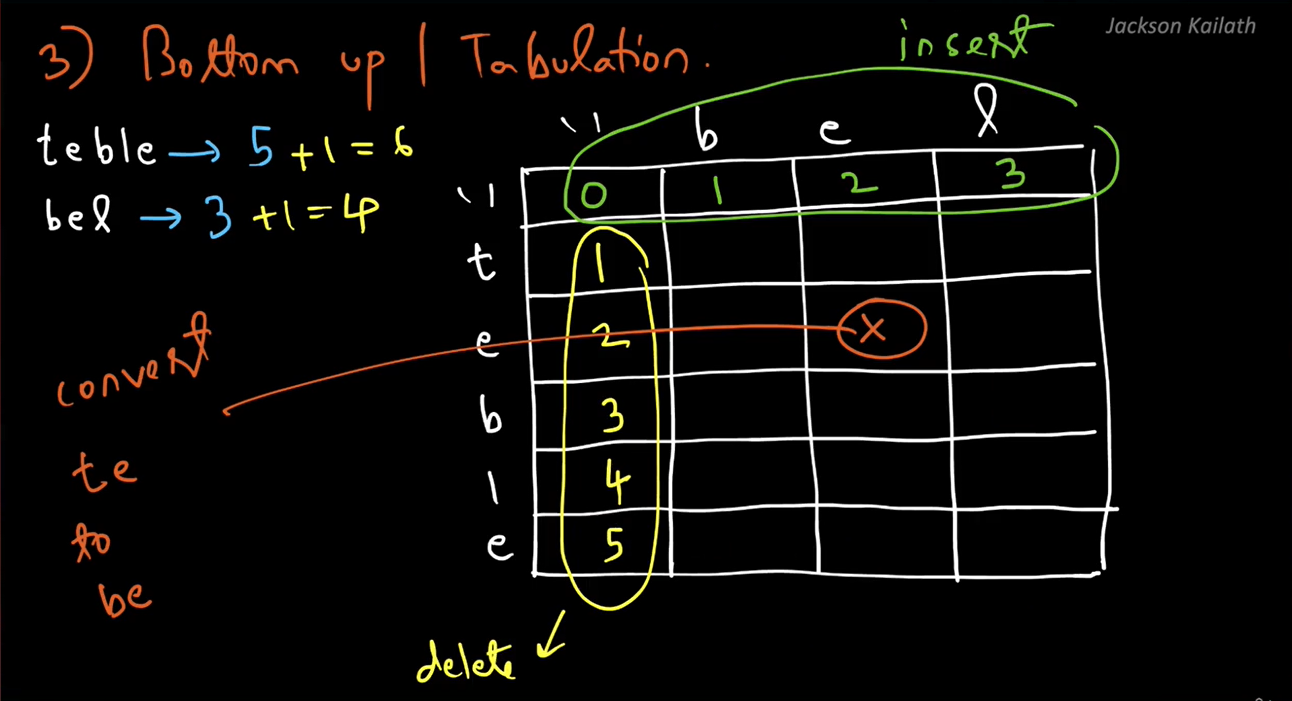 Jackson Kailath
3) Bottom up | Tabulation.
insert
teble → 5 +1 = 6
bel → 3 +1 = 4
" b e l
" 0 1 2 3
t 1
e 2 x
b 3
l 4
e 5
convert
te
to
be
delete